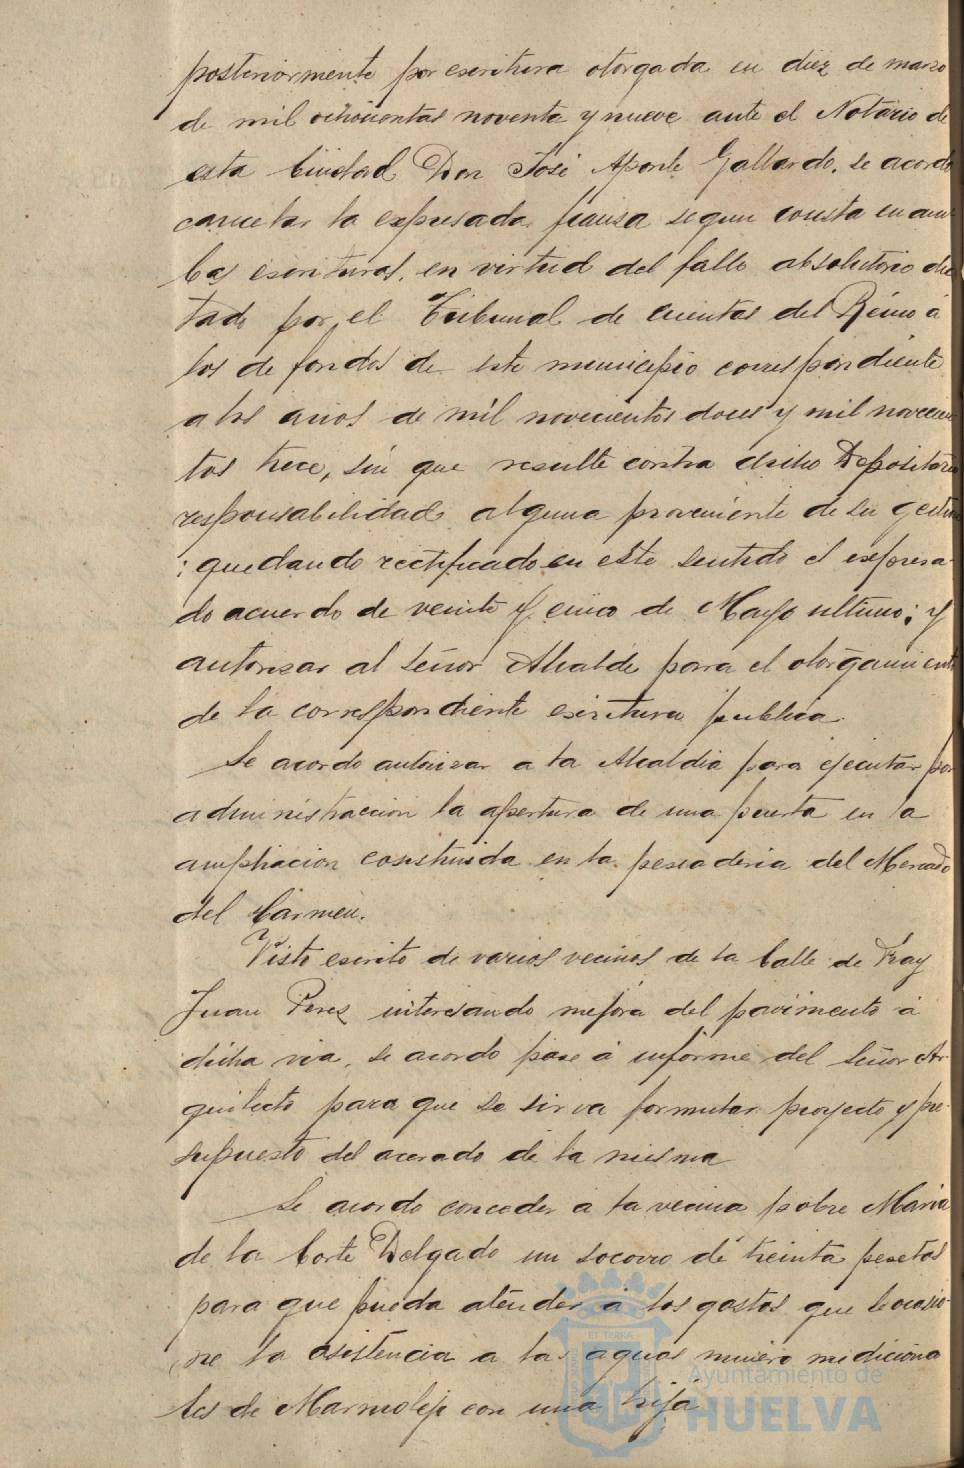 posteriormente por escritura otorgada en diez de marzo
de mil ochocientos noventa y nueve ante el Notario de
esta Ciudad Don José Aponte Gallardo, se acordó
cancelar la expresada fianza segun consta en am-
bas escrituras, en virtud del fallo absolutorio dic
tado por el Tribunal de cuentas del Reino á
los de fondos de este municipio correspondiente
a los años de mil novecientos doce y mil novecien
tos trece, sin que resulte contra dicho Depositario
responsabilidad alguna proveniente de su gestion
; quedando rectificado en este sentido el expresa-
do acuerdo de veinte y cinco de Mayo ultimo; y
autorizar al Señor Alcalde para el otorgamiento
de la correspondiente escritura publica.
Se acordo autorizar a la Alcaldia para ejecutar por
administracion la apertura de una puerta en la
ampliacion construida en la pescaderia del Mercado
del Carmen.
Visto escrito de varios vecinos de la Calle de Fray
Juan Perez interesando mejora del pavimento á
dicha via, se acordo pase á informe del Señor Ar
quitecto para que se sirva formular proyecto y pre-
supuesto del acerado de la misma
Se acordo conceder a la vecina pobre Maria
de la Corte Delgado un socorro de treinta pesetas
para que pueda atender á los gastos que le ocasio-
ne la asistencia a las aguas minero medicina
les de Marmolejo con una hija
Ayuntamiento de
HUELVA